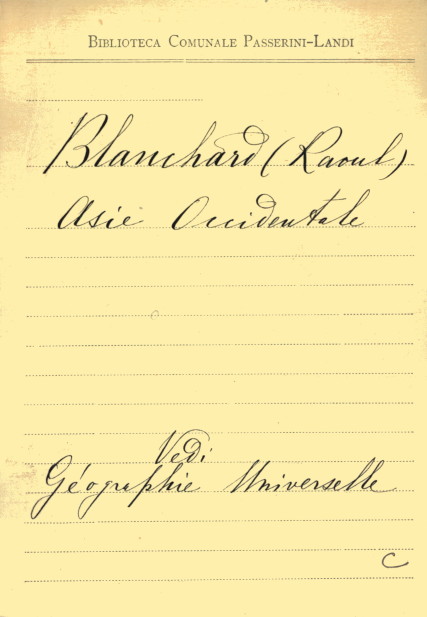 Biblioteca Comunale Passerini-Landi
Blanchard (Raoul)
Asie Occidentale
Vedi
Géographie Universelle
C